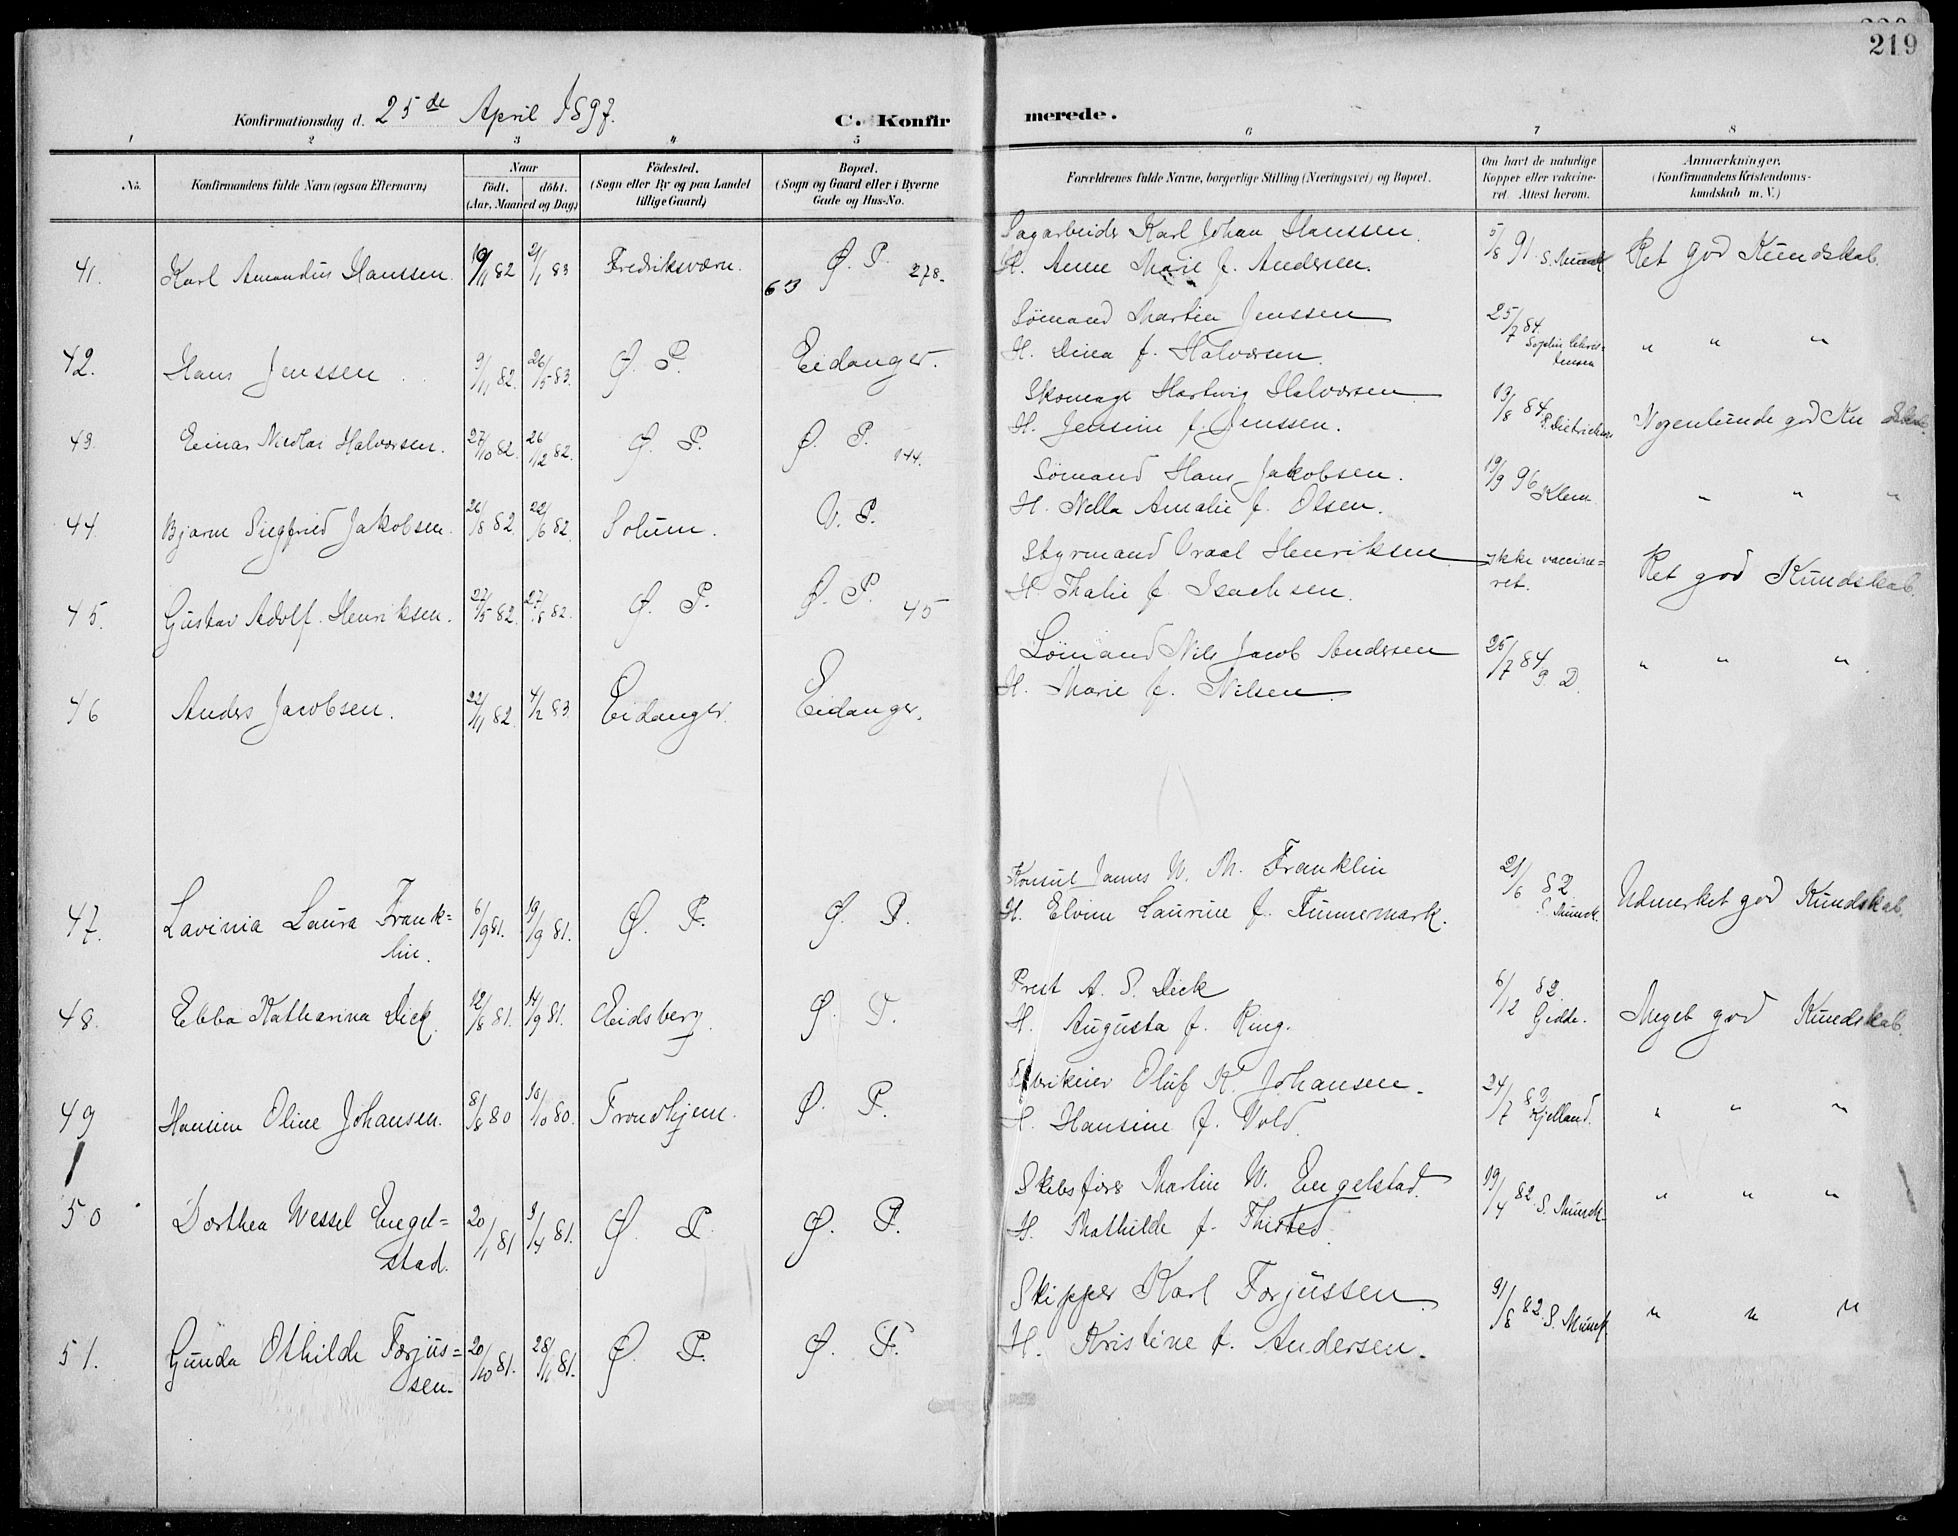 219
Konfirmationsdag d. 25de April 1897.
C. Konfirmerede.
1 2 3 4 5 6 7 8
No. Konfirmandens fulde Navn (ogsaa Efternavn) Naar födt. döbt. (Aar, Maaned og Dag) Födested. (Sogn eller By og paa Landet tillige Gaard) Bopæl. (Sogn og Gaard eller i Byerne Gade og Hus-No. Forældrenes fulde Navne, borgerlige Stilling (Næringsvei) og Bopæl. Om havt de naturlige Kopper eller vaccineret. Attest herom. Anmærkninger. (Konfirmandens Kristendomskundskab m. V.)
Sagarbeider Karl Johan Hanssen.
41. Karl Amandus Hanssen. 19/11 82 21/1 83 Fredriksværn. Ø. P. 278. H. Anne Marie f. Andersen. 5/8 91. S. Munck Ret god Kundskab.
Sömand Martin Jenssen
42. Hans Jenssen 9/11 82. 26/5 83. Ø. P. Eidanger. H. Dina f. Halvorsen. 25/7 84. Sophie Christensen " " "
Skomager Hartvig Halvorsen
43 Einar Nicolai Halvorsen. 27/10 82. 26/12 82. Ø. P. Ø. P. 144. H. Jensine f. Jenssen. 19/8 84 P. Dietrichson Nogenlunde god
Sömand Hans Jakobsen.
44. Bjarne Siegfried Jakobsen. 26/8 82 22/6 82. Solum. V. P. H. Nella Amalie f. Olsen. 19/9 96 Klem " " "
Styrmand Vraal Henriksen
45. Gustav Adolf Henriksen. 27/5 82. 27/8 82. Ø. P. Ø. P. 45 H. Thalie f. Isachsen. Ikke vaccineret. Ret god Kundskab.
Sömand Nils Jacob Andersen
46 Anders Jacobsen. 22/11 82. 4/2 83 Eidanger. Eidanger. H. Marie f. Nilsen. 25/7 84 G. D. " " "
Konsul James W. M. Franklin
47. Lavinia Laura Frank= 6/9 81. 19/9 81. Ø. P. Ø. P. H. Elvine Laurine f. Funnemark. 21/6 82 S. Munck. Udmerket god Kundskab.
lin.
Prest A. S. Dick
48. Ebba Katharina Dick. 12/8 81. 14/9 81. Eidsberg. Ø. P. H. Augusta f. Ring. 6/12 82. Gedde. Meget god Kundskab.
Oluf K. Johansen.
49 Hansine Oline Johansen. 8/8 80 10/10 80. Trondhjem. Ø. P. H. Hansine f. Vold. 24/7 83 Kjelland. " " "
Skibsförer Martin W. Engelstad.
50 Dorthea Wessel Engel= 20/1 81 3/4 81. Ø. P. Ø. P. H. Mathilde f. Thisted. 19/4 82 S. Munck. " " "
stad.
Skipper Karl Forjussen.
51. Gunda Othilde Forjus= 20/10 81. 28/11 81. Ø. P. Ø. P. H. Kristine f. Andersen. 31/8 82. S. Munck " " "
sen.